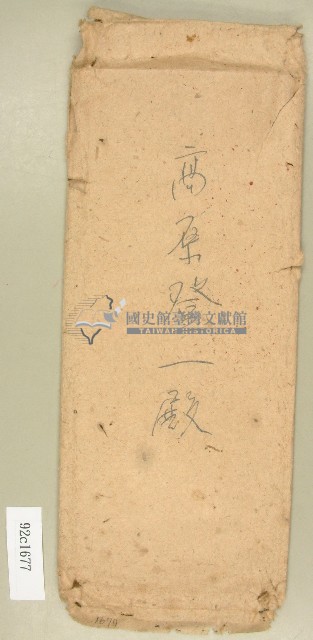 高原發一殿
國史館臺灣文獻館
TAIWAN HISTORICA
92c1677
1679